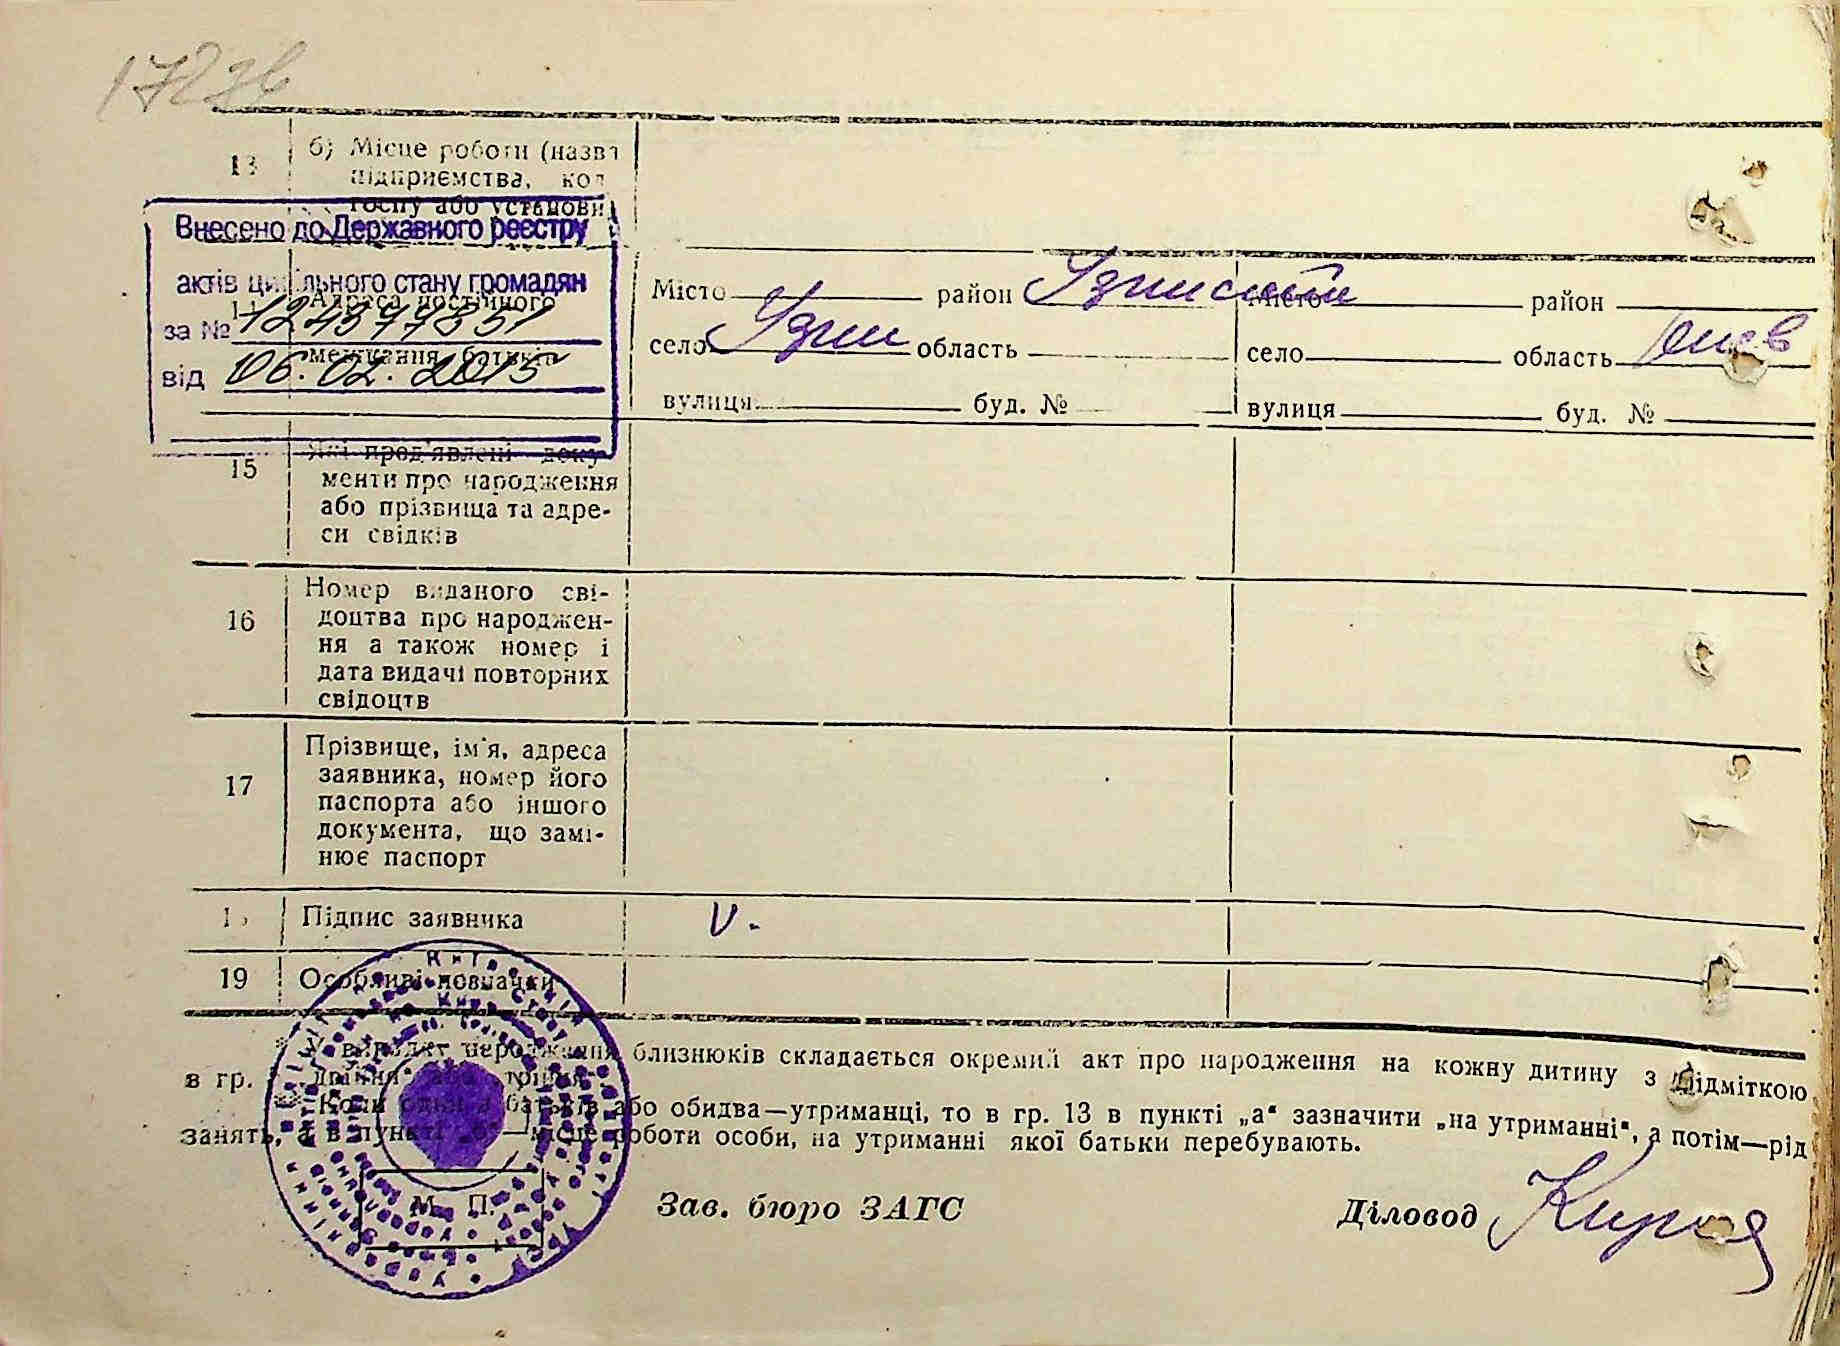 17276
13 б) Місце роботи (назва
підприємства, кол
госпу або установи
Внесено до Державного реєстру
актів цивільного стану громадян
за №
від 06.02.2015
Адреса постійного
мешкання батьків
Місто район Узинський Місто район
село Узин область село область Киев
вулиця буд. № вулиця буд. №
15 Які пред'явлені доку-
менти про народження
або прізвища та адре-
си свідків
16 Номер виданого сві-
доцтва про народжен-
ня а також номер і
дата видачі повторних
свідоцтв
17 Прізвище, ім'я, адреса
заявника, номер його
паспорта або іншого
документа, що замі-
нює паспорт
Підпис заявника V.
19 Особливі позначки
народження близнюків складається окремий акт про народження на кожну дитину з відміткою
в гр. „двійня" або трійня
** Коли один з батьків або обидва—утриманці, то в гр. 13 в пункті „а" зазначити „на утриманні", а потім—рід
занять, а в пункті „б"—місце роботи особи, на утриманні якої батьки перебувають.
М. П. Зав. бюро ЗАГС Діловод